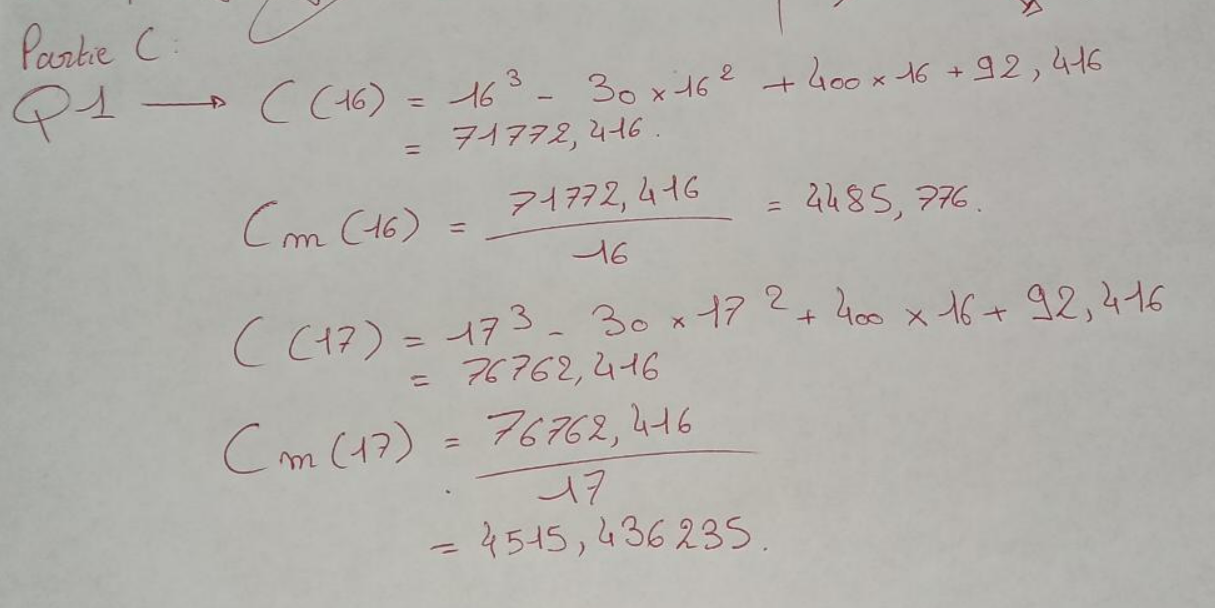 Partie C :
Q1 → C(16) = 16³ - 30 × 16² + 400 × 16 + 92,416
= 71772,416.
Cm(16) = 71772,416 / 16 = 4485,776.
C(17) = 17³ - 30 × 17² + 400 × 16 + 92,416
= 76762,416
Cm(17) = 76762,416 / 17
= 4515,436235.